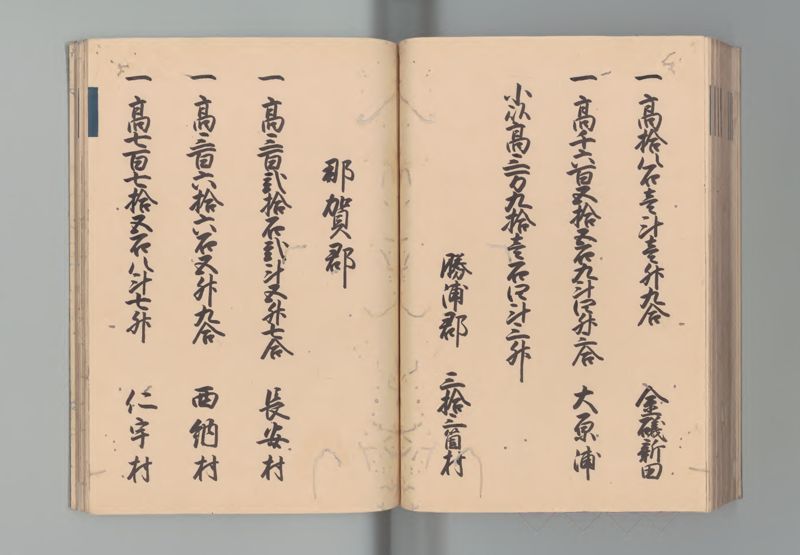 一 高拾八石壱斗壱升九合 金磯新田
一 高千六百五拾五石九斗四升六合 大原浦
小以高三万九拾壱石四斗三升
勝浦郡 三拾三箇村
那賀郡
一 高三百弐拾石弐斗五升七合 長安村
一 高三百六拾六石五升九合 西納村
一 高七百七拾五石八斗七升 仁宇村